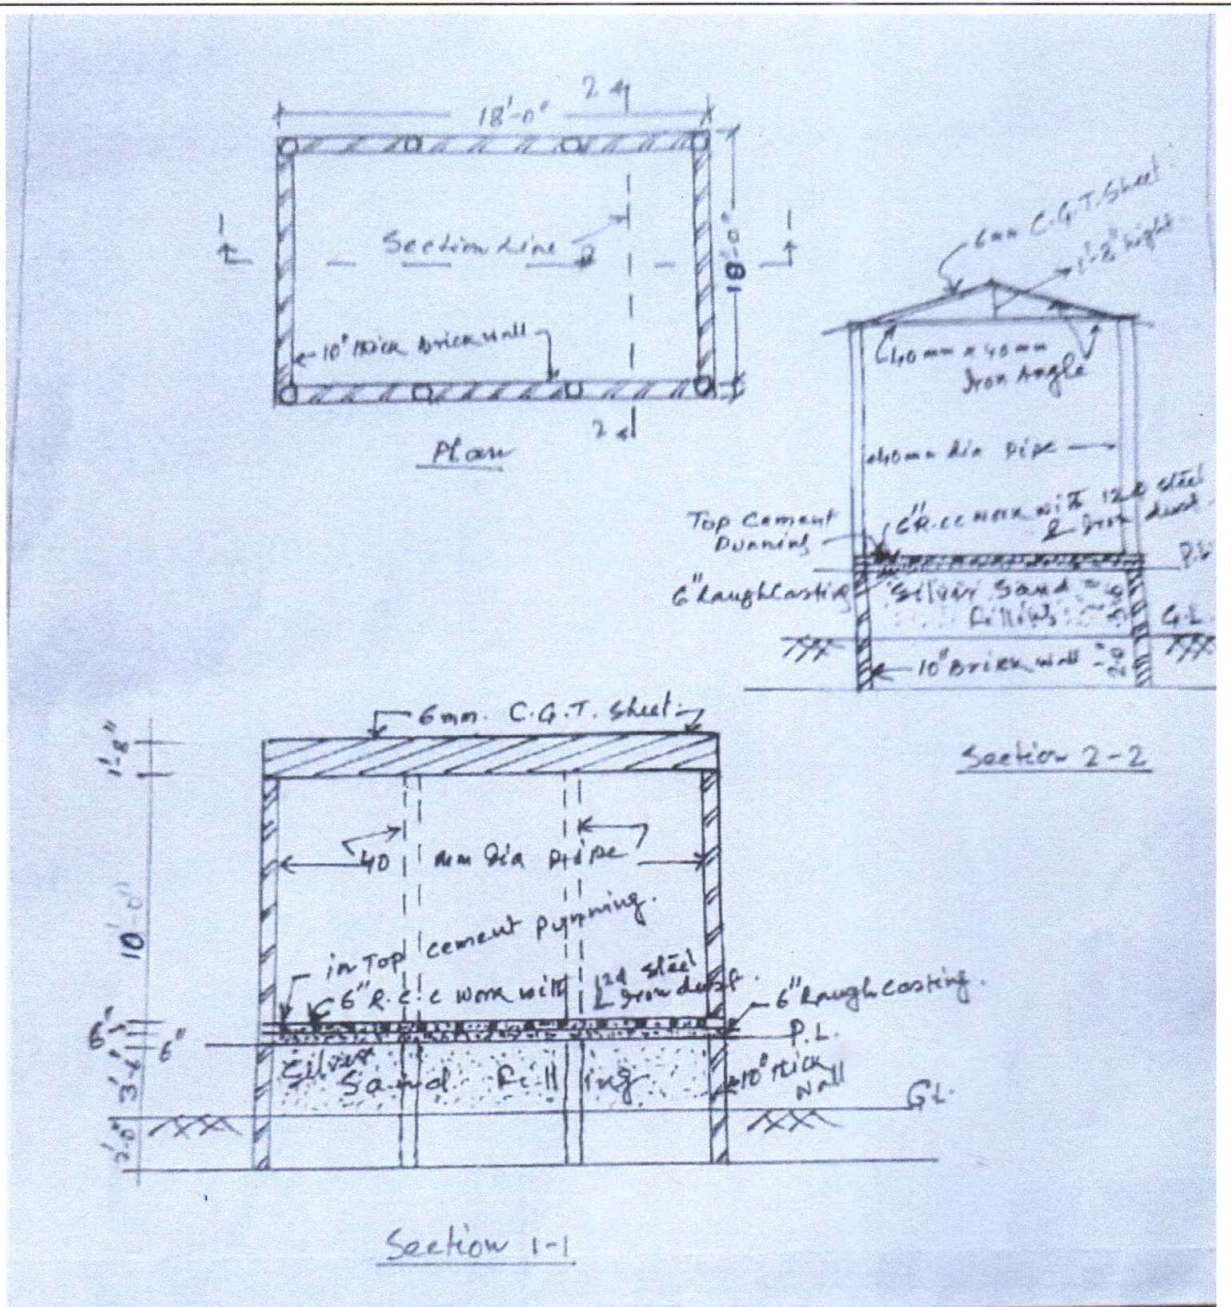 2
18'-0"
1
1
Section Line
2
18'-0"
10" thick brick wall
2
Plan
6mm C.G.T. Sheet
1'-8" hight
40mm x 40mm
Iron Angle
40mm dia pipe
Top Cement
Punning
6" R.cc work with 12 steel
& Iron dust
P.L
6" Rough Casting
Silver Sand
Filling
G.L.
10" Brick wall
Section 2-2
6mm. C.G.T. Sheet
1'-8"
40 mm Dia pipe
10'-0"
in Top cement punning.
6" R.c.c work with steel
& Iron dust
6" Rough casting.
6"
6"
P.L.
Silver
Sand Filling
10" thick
wall
G.L.
2'-0"
Section 1-1